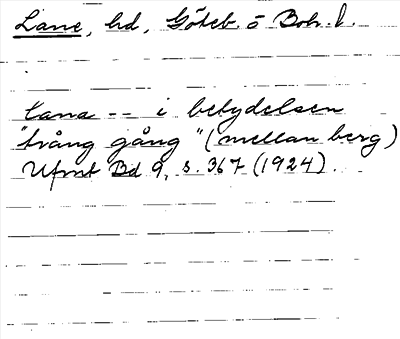 Lane, hd, Göteb. o Boh. l.
lana -- i betydelsen
"trång gång" (mellan berg)
Ufmt Bd 9, s. 367 (1924).